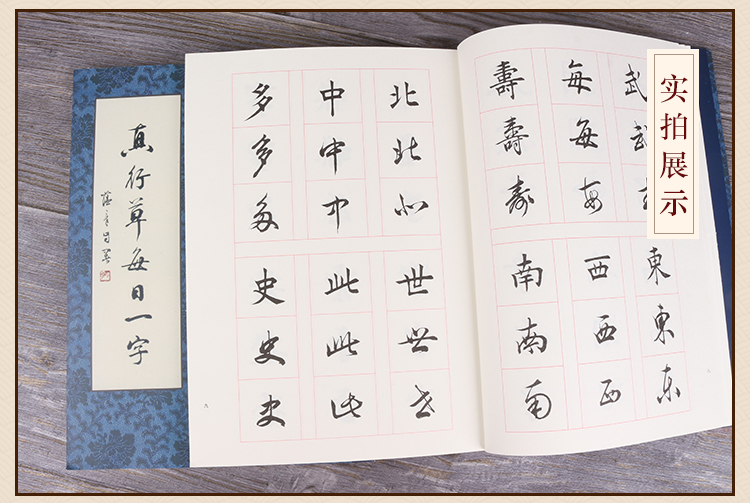 真行草每日一字
北北北
中中中
多多多
世世世
此此此
史史史
九
武武
每每每
壽壽壽
東東東
西西西
南南南
实拍展示